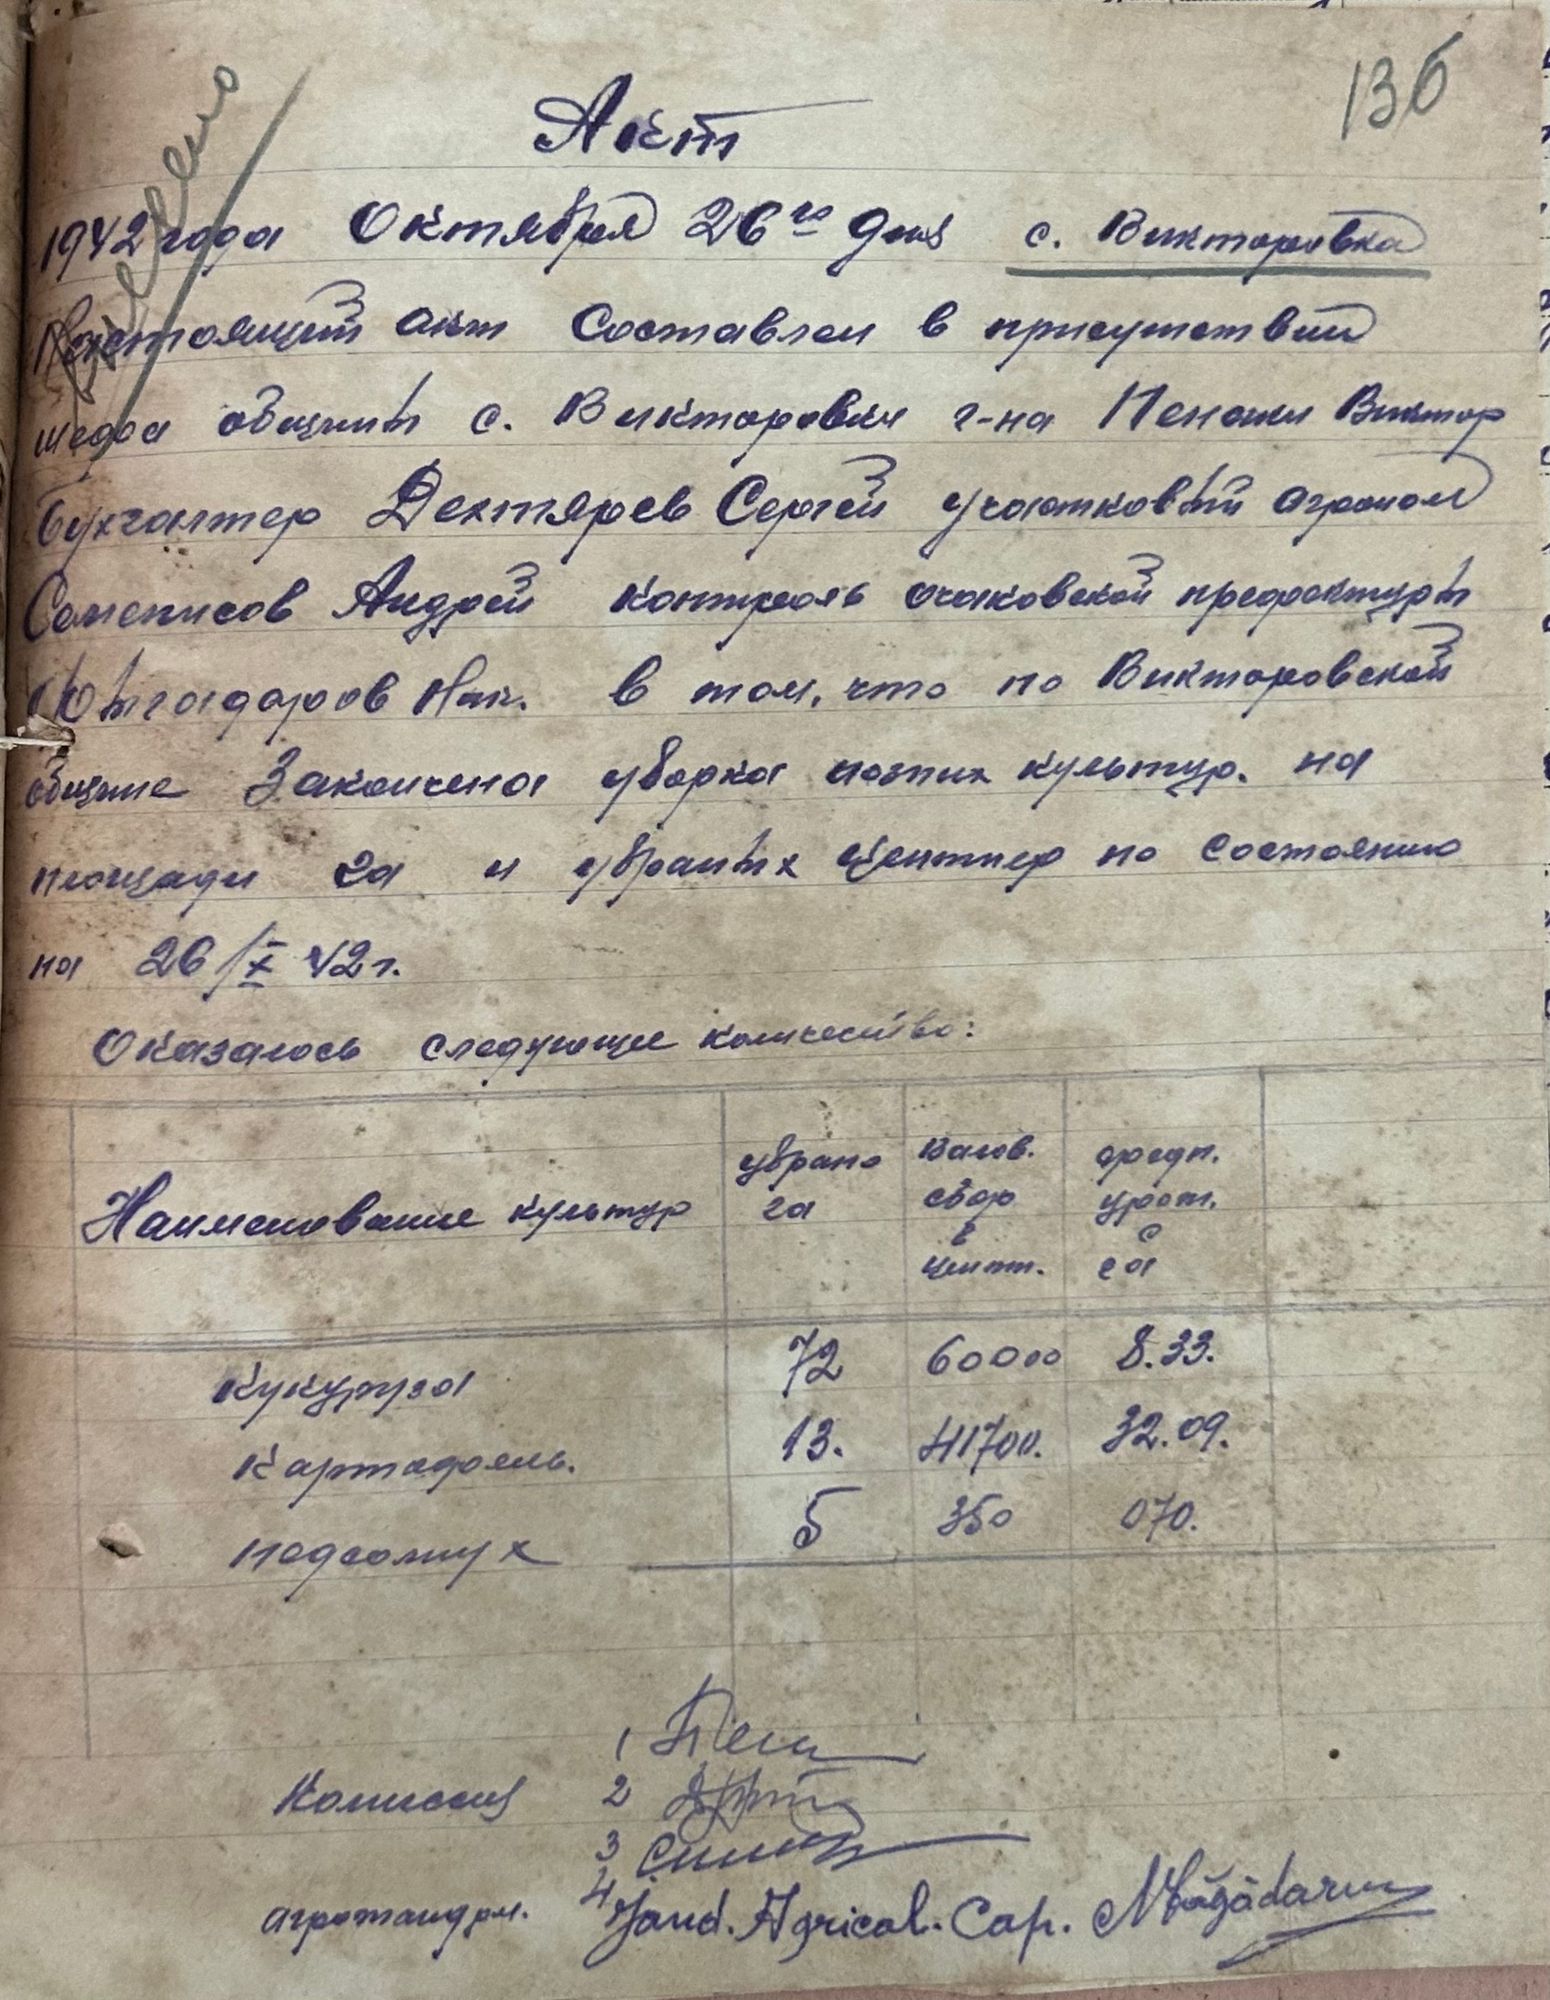 136
Акт
1942 года Октября 26го дня с. Викторовка
Настоящий акт составлен в присутствии
шефа общины с. Викторовки г-на Виктор
Бухгалтер Дехтярев Сергей участковый агроном
Андрей контроль очаковской префектуры
в том, что по Викторовской
общине Закончена уборка культур. на
площади га и убраных центнер по состоянию
на 26/X 42 г.
Оказалось следующие количество:
Наименование культур
убрано га
валов. сбор в центн.
средн. урож. с га
кукуруза 72 60000 8.33.
Картофель. 13. 41700. 32.09.
подсолнух 5 350 070.
1 Пен
Комиссия 2
3
агрожандрм. 4 Jand. Agricol. Cap.